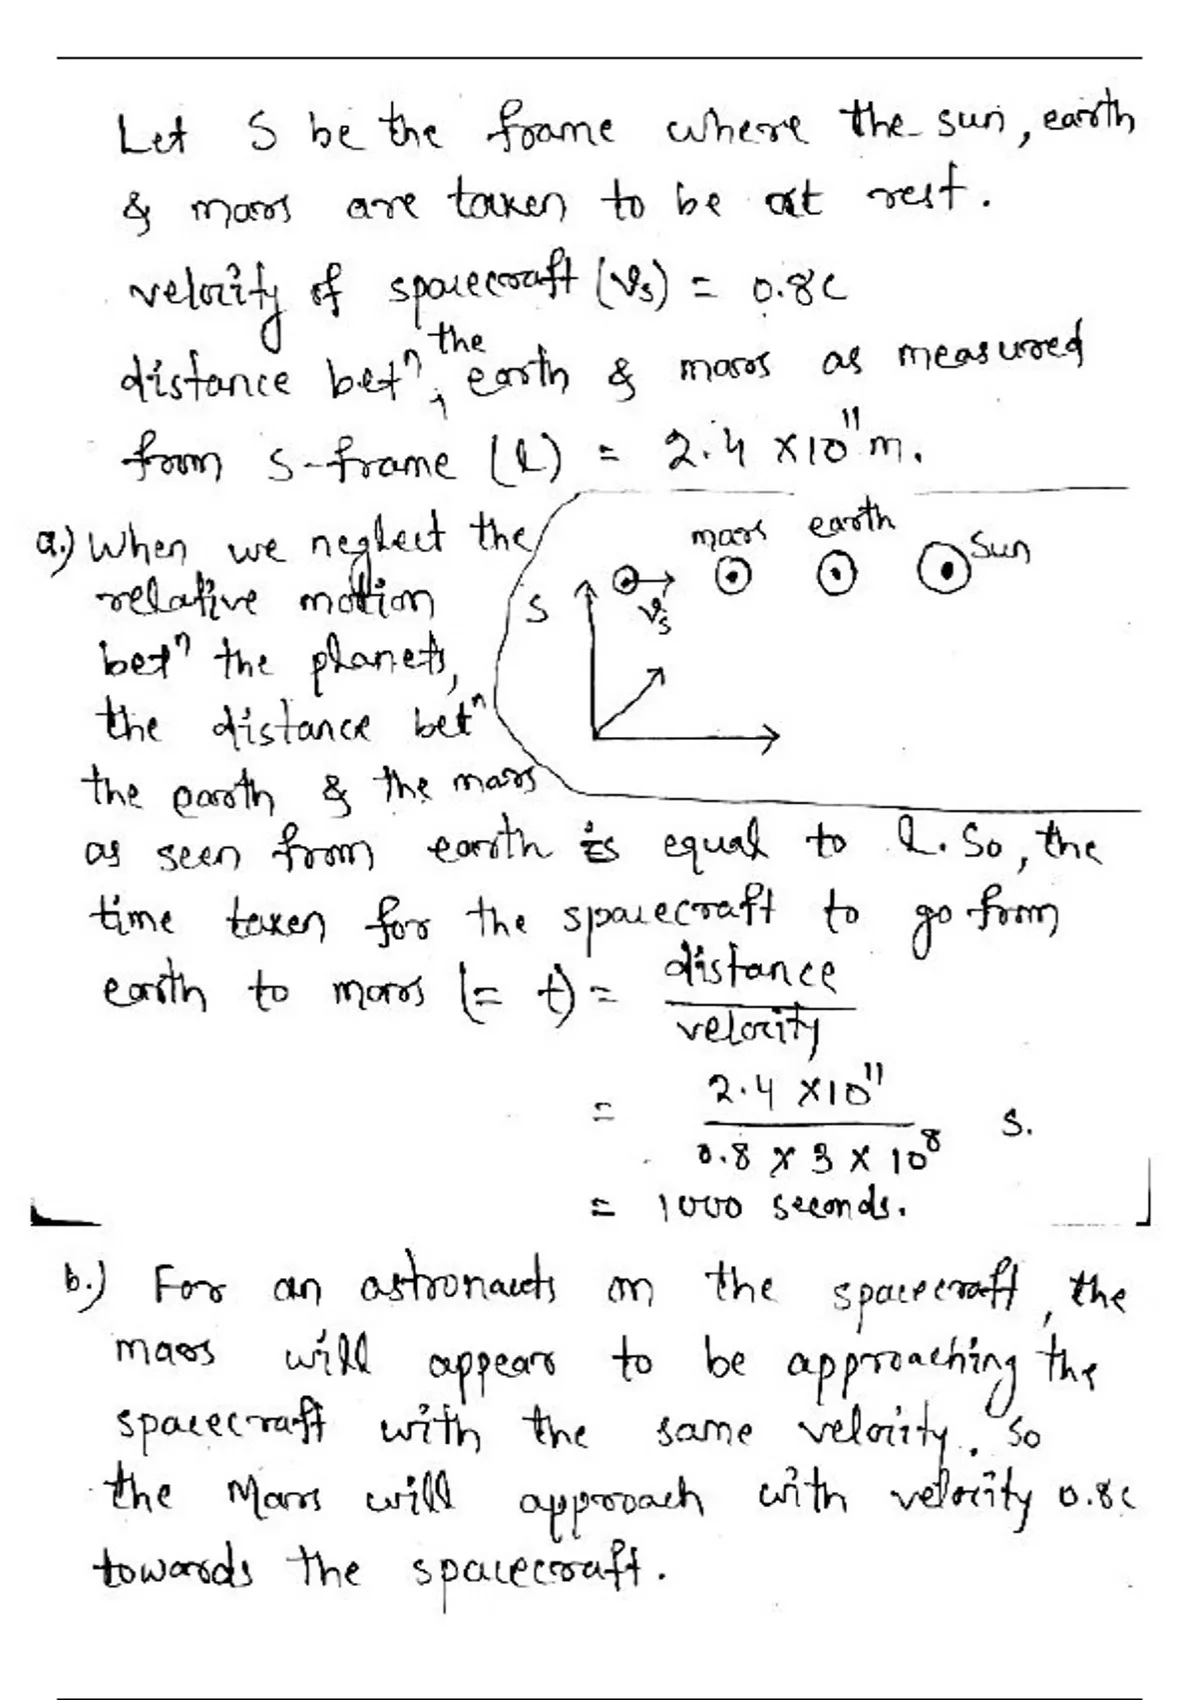 Let S be the frame where the sun, earth
& mars are taken to be at rest.
velocity of spacecraft (vs) = 0.8c
distance betⁿ the earth & mars as measured
from S-frame (l) = 2.4 × 10¹¹ m.
a.) When we neglect the
relative motion
betⁿ the planets,
the distance betⁿ
the earth & the mars
mars earth Sun
S
vs
as seen from earth is equal to l. So, the
time taken for the spacecraft to go from
earth to mars (= t) = distance / velocity
= 2.4 × 10¹¹ / 0.8 × 3 × 10⁸ s.
= 1000 seconds.
b.) For an astronauts on the spacecraft, the
mars will appear to be approaching the
spacecraft with the same velocity. So
the Mars will approach with velocity 0.8c
towards the spacecraft.